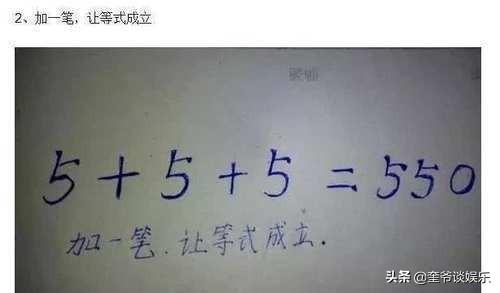 2、加一笔，让等式成立
5+5+5=550
加一笔.让等式成立.
头条 @奎爷谈娱乐